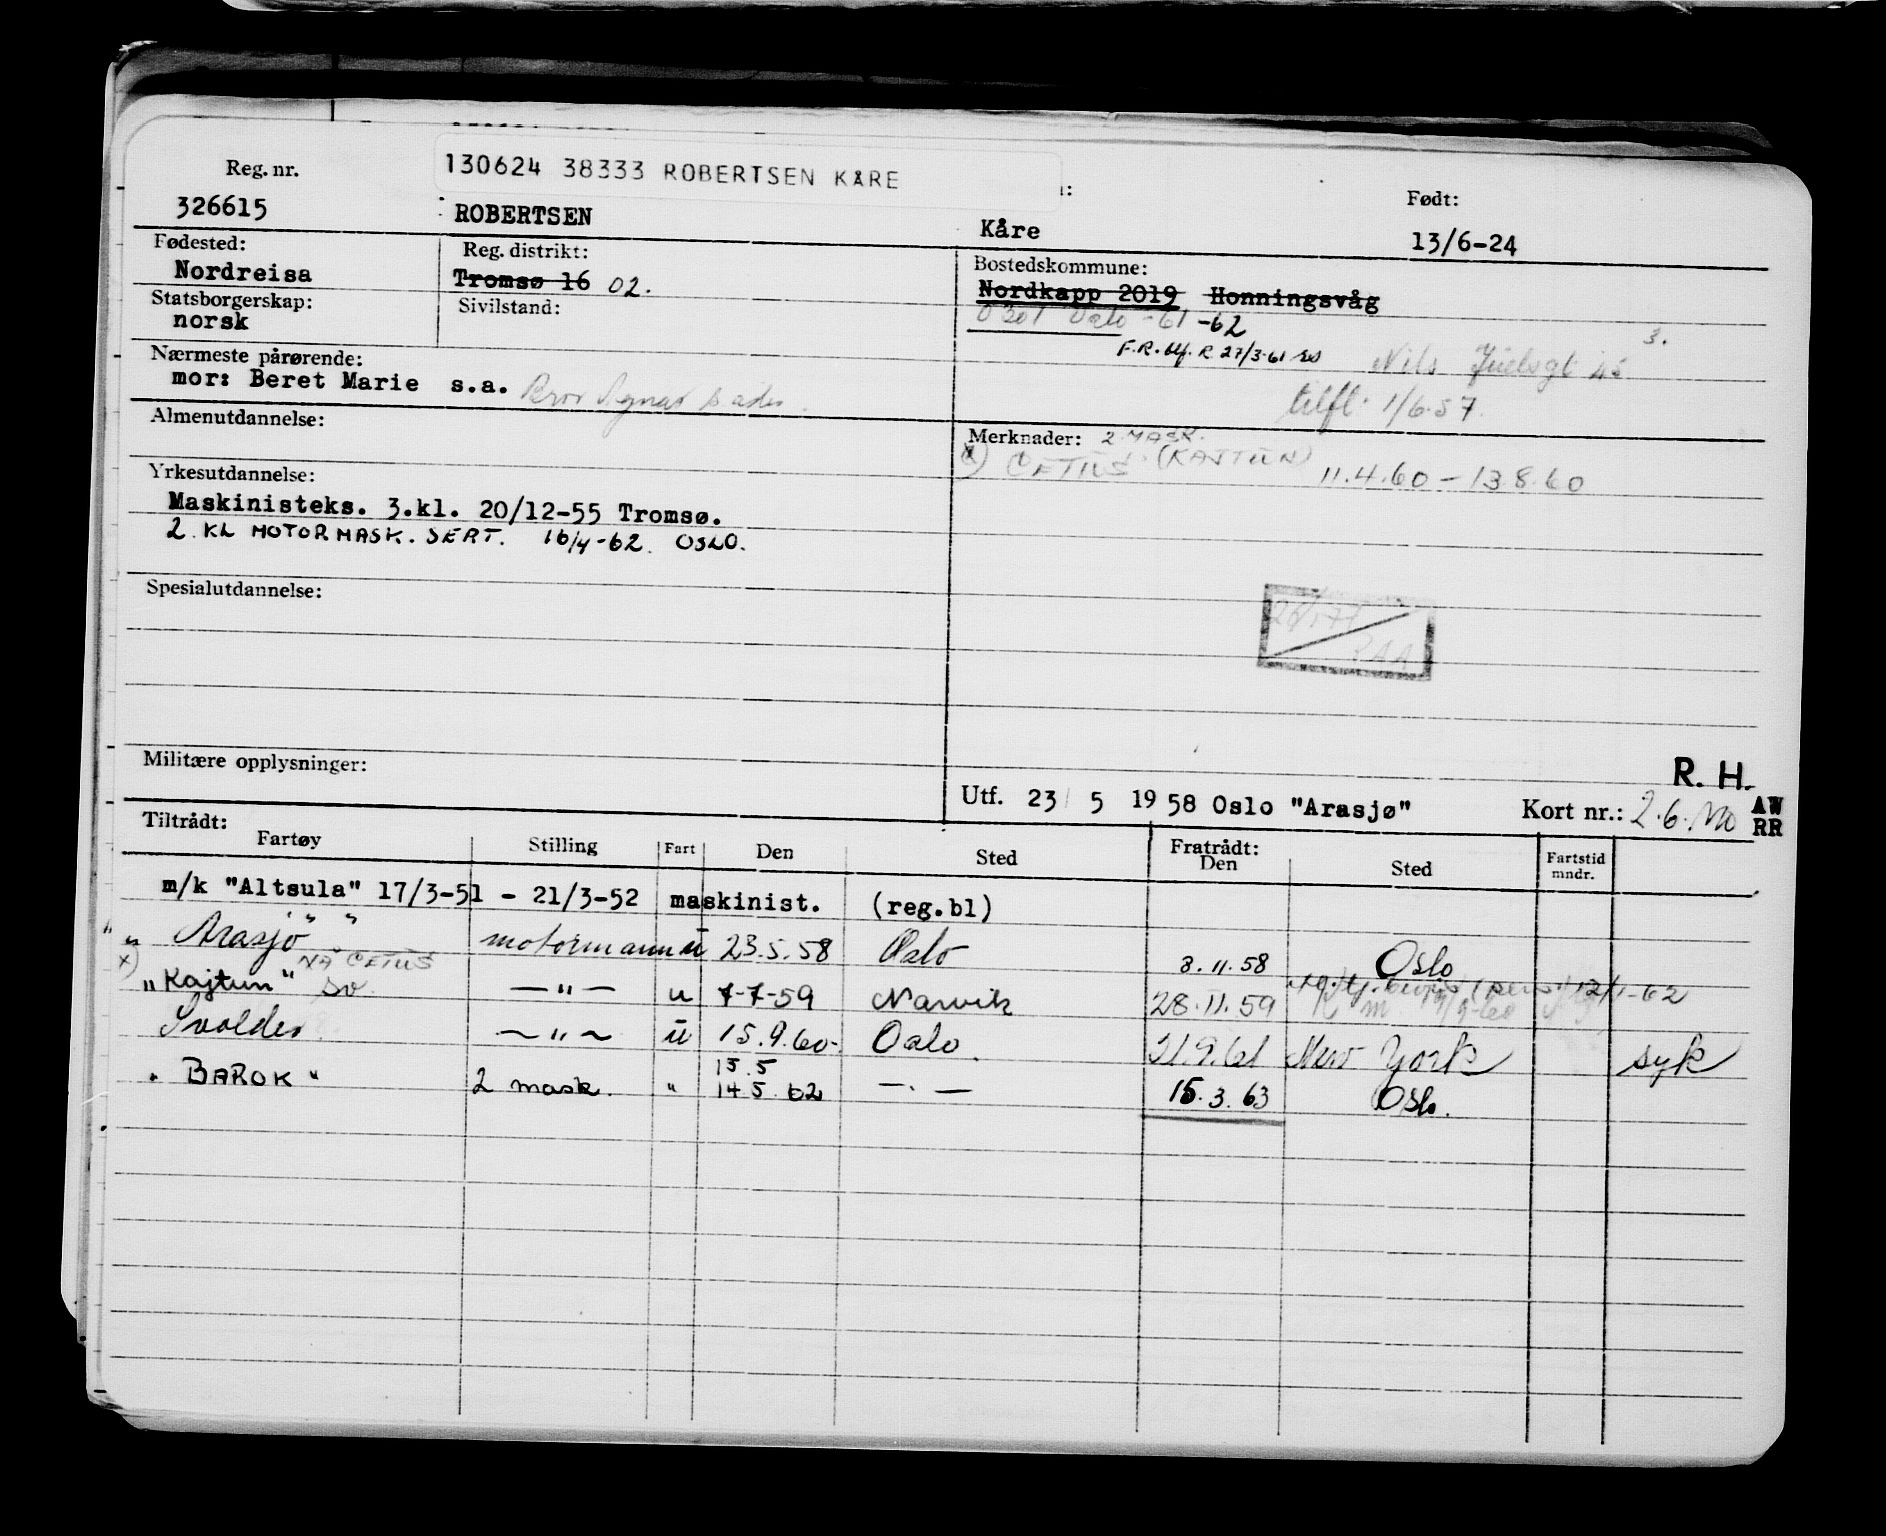 130624 38333 ROBERTSEN KÅRE
Reg. nr. Født:
326615 ROBERTSEN Kåre 13/6-24
Fødested: Reg. distrikt: Bostedskommune:
Nordreisa Tromsø 16 02. Nordkapp 2019 Honningsvåg
Statsborgerskap: Sivilstand: 0301 Oslo -61 -62
norsk
3.
Nærmeste pårørende: F.R. utf. R 27/3-61 Nils Juelsgt 45
mor: Beret Marie s.a. Bror
tilfl. 1/6.57.
Almenutdannelse: Merknader: 2. MASK.
x) CETUS (KAJTUN) 11.4.60 – 13.8.60
Yrkesutdannelse:
Maskinisteks. 3.kl. 20/12-55 Tromsø.
2. KL MOTORMASK. SERT. 16/4-62. OSLO.
Spesialutdannelse:
RAA
Militære opplysninger:
R. H.
Utf. 23 5 1958 Oslo "Arasjø" Kort nr.: 2.6. AW
RR
Tiltrådt: Fratrådt:
Fartøy Stilling Fart Den Sted Den Sted Fartstid mndr.
m/k "Altsula" 17/3-51 - 21/3-52 maskinist. (reg.bl)
" Arasjø " motormann u 23.5.58 Oslo 3.11.58 Oslo
x) NÅ CETUS 12/1-62
"Kajtun" so. — " — u 7-7-59 Narvik 28.11.59
Svolder — " — u 15.9.60- Oslo. 21.9.61 New York syk
15.5
" BAROK " 2 mask. " 14.5.62 — . — 15.3.63 Oslo.